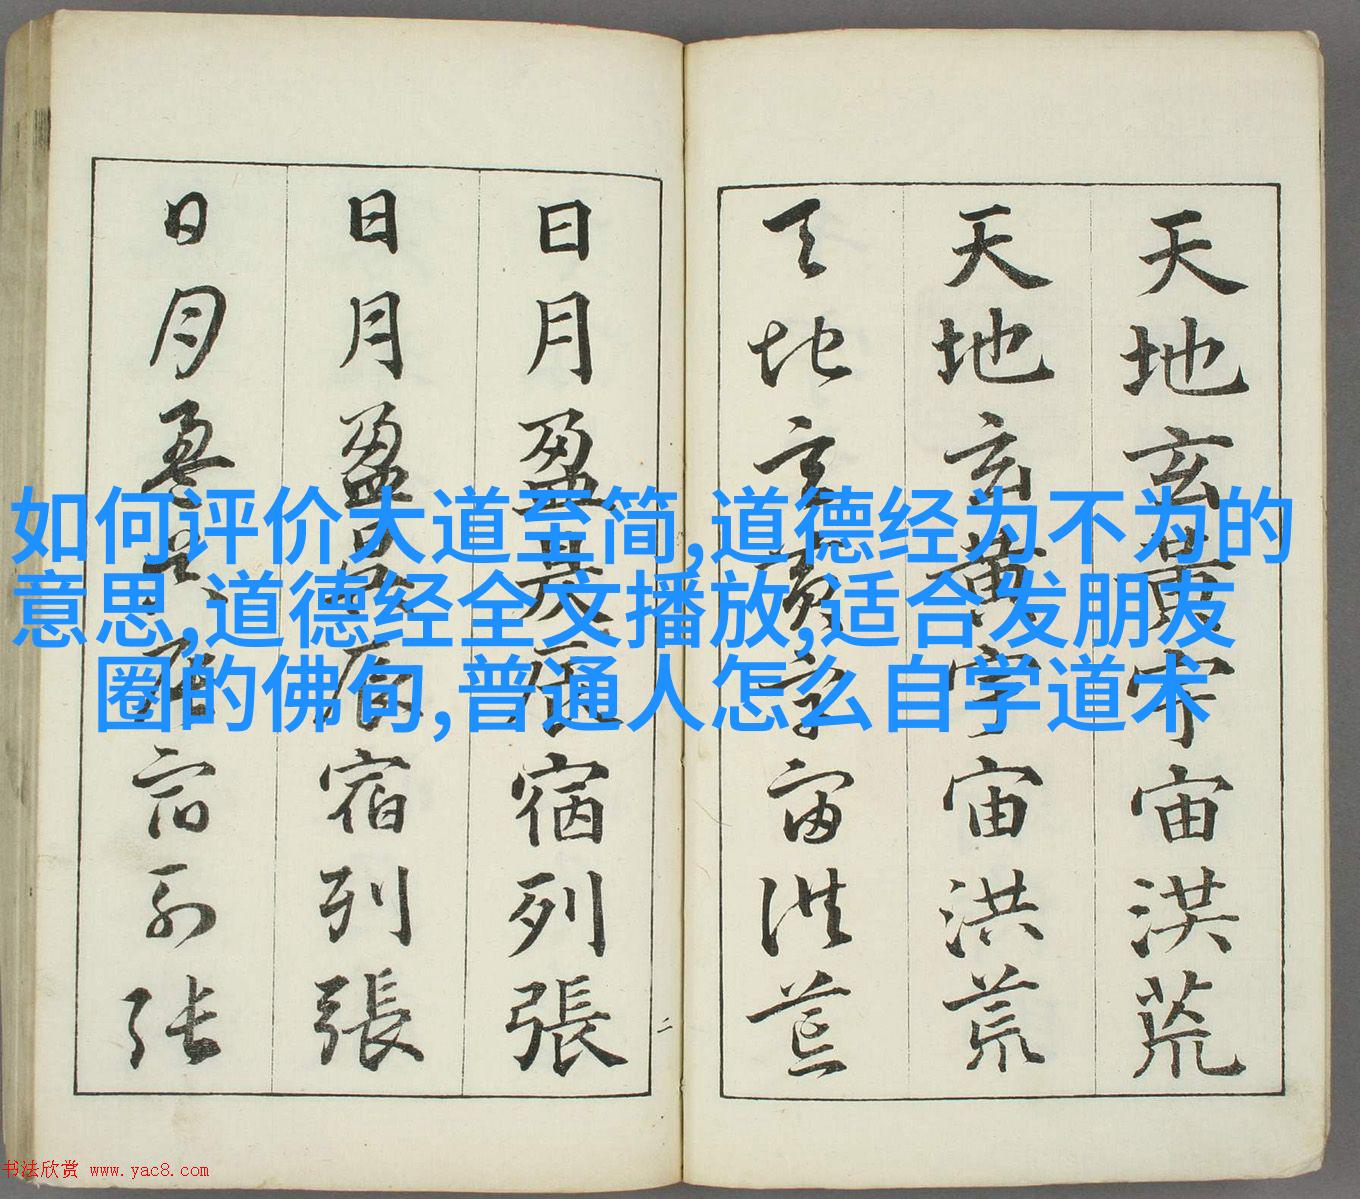 天地玄黄宇宙洪荒
天地玄黄宇宙洪荒
天地玄黄宇宙洪荒
日月盈昃辰宿列張
日月盈昃辰宿列張
日月盈昃辰宿列张
二
如何评价大道至简,道德经为不为的
意思,道德经全文播放,适合发朋友
圈的佛句,普通人怎么自学道术
书法欣赏 www.yac8.com